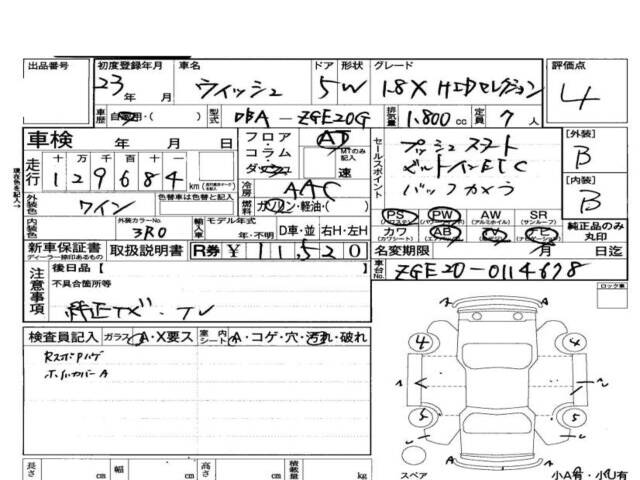 出品番号 初度登録年月 車名 ドア 形状 グレード 評価点
23年 月 ウィッシュ 5 W 1.8X HIDセレクション 4
車歴 自家用・( ) 型式 DBA-ZGE20G 排気量 1,800 cc 定員 7 人
車検 年 月 日 フロア AT
コラム・ MTのみ記入
ダッシュ 速
セールスポイント プッシュスタート
ビルトインETC
バックカメラ
[外装] B
[内装] B
現在色を記入→
走行 十 万 千 百 十 一
129684 km
冷房 AAC
外装色 ワイン 色替車は色替と記入
燃料 ガソリン・軽油・( )
内装色 外装カラーNo. 3R0 輸入車 モデル年式 年・不明 D車・並 右H・左H
PS PW AW SR
(パワステ) (パワーウィンドウ) (アルミホイル) (サンルーフ)
カワ AB TV ナビ
(カワシート) (エアバック)
純正品のみ丸印
新車保証書 取扱説明書 R券 ¥11,520
ディーラー捺印あるもの
名変期限 月 日迄
車台No. ZGE20-0114678
注意事項 後日品[ ]
不具合箇所等
純正ナビ・TV
ロック車
検査員記入 ガラス A・X要ス 室内シート A・コゲ・穴・汚れ・破れ
RスポPハゲ
ホイルカバーA
4 4
5 5
スペア
小A有・小U有
長さ cm 幅 cm 高さ cm 積載量 kg